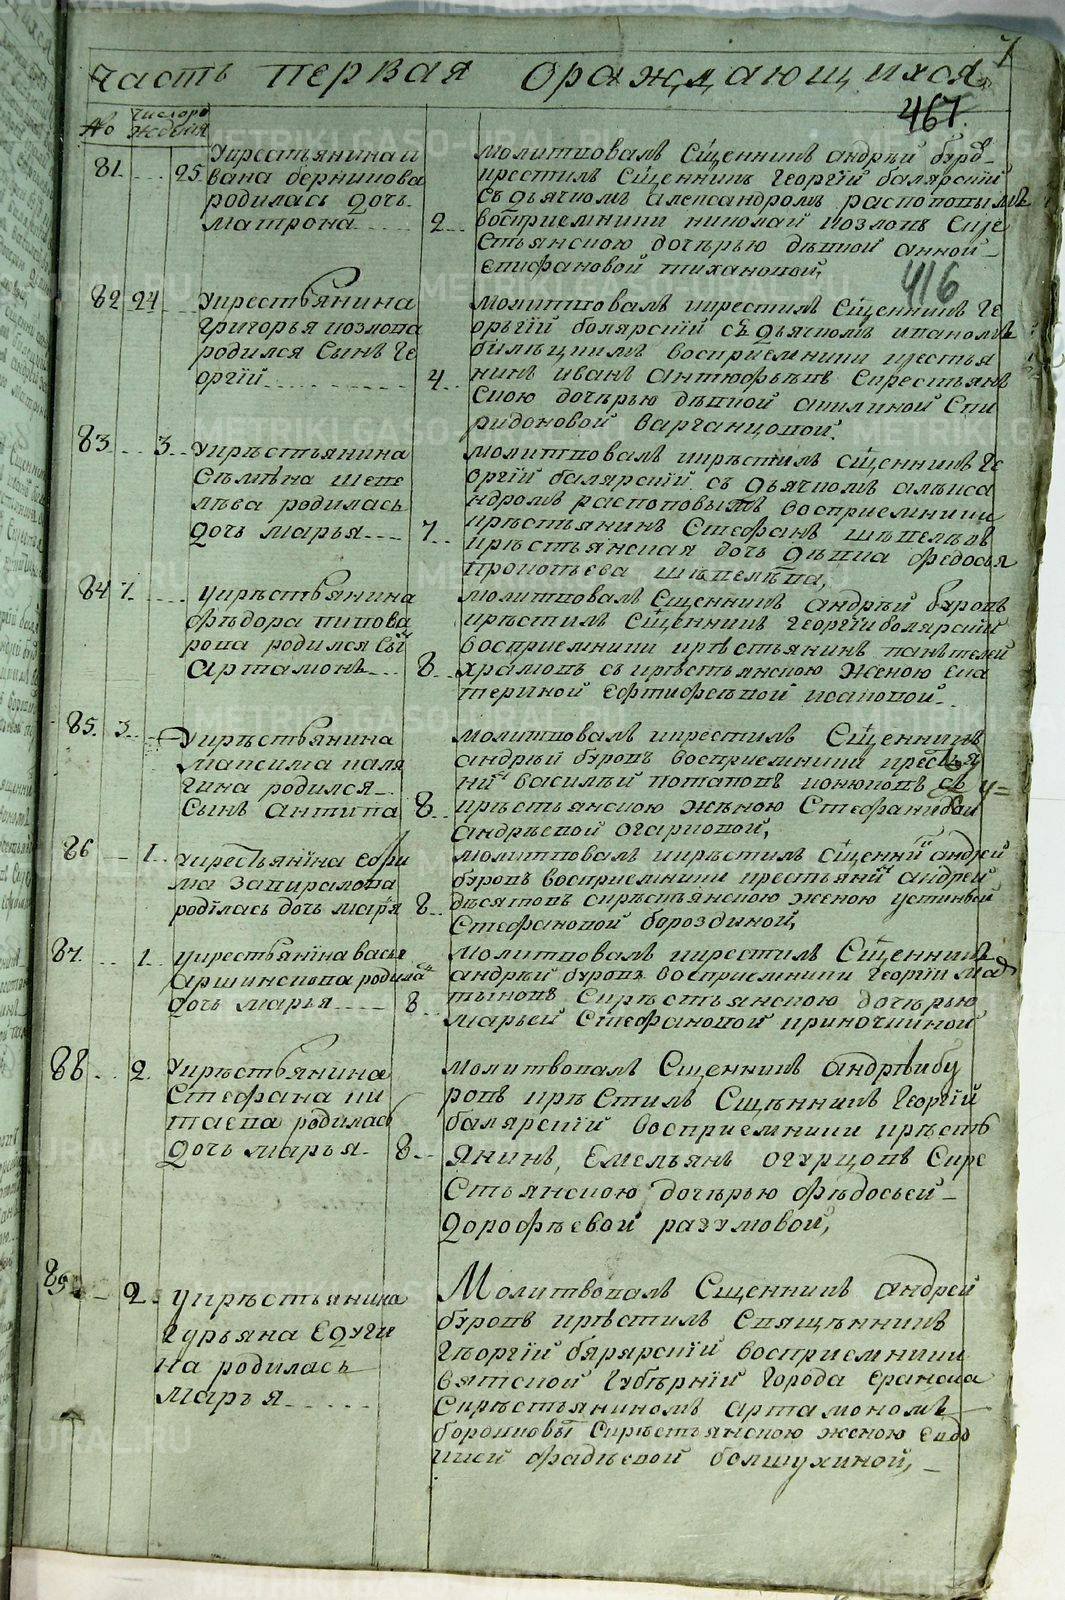 7
часть первая ораждающихся
467.
No
число ро
ждения
81. 25
Укрестьянина и
вана берникова
родилась дочь
матрона 2
молитвовалъ Сщенникъ андрей буровъ
крестилъ Сщенникъ Георгiй балярскiй
Съ дьячкомъ александромъ распоповымъ
восприемники николай козловъСкре
Стьянскою дочерью девкой анной
Стефановой тихановой,
416
82 24
Укрестьянина
григорья козлова
родился Сынъ Ге
оргiй 4
молитвовалъ икрестилъ Сщенникъ Ге
оргiй болярскiй съ дьячкомъ иваномъ
восприемники крестья
нинъ иванъ антюфьевъ Скрестьян
Скою дочерью девкой акилиной Спи
ридоновой варганцовой.
83 3
Укрѣстьянина
Сѣмѣна шепе
лѣва родилась
дочь марья 7
молитвовалъ икрѣстилъ сщенникъ Ге
оргiй балярскiй съ дьячкомъ алѣкса
ндромъ распоповымъ восприемники
крѣстьянинъ Стефанъ шѣпелѣвъ
крѣстьянская дочь дѣвка федосья
прокопьева шѣпелѣва,
84 7
Укрѣстьянина
фѣдора пивова
рова родился Сы
Артамонъ 8
молитвовалъ Сщенникъ андрѣй буровъ
крѣстилъ Сщенникъ Георгiй болярскiй
восприемники крѣстьянинъ пантелей
храмовъ съ крѣстьянскою женою ека
териной
85. 3.
Укрѣстьянина
максима каля
гина родился
Сынъ антипа 8
молитвовалъ икрестилъ Сщенникъ
андрѣй буровъ восприемники крестья
нинъ василѣй потаповъ
крѣстьянскою жѣною Стефанидой
андрѣевой огарковой,
86 1
Укрестьянина ефи
ма
родiлась дочь марья 8
молитвовалъ икрѣстилъ сщенникъ андрей
буровъ восприемники крестьянинъ андрей
дѣсятовъ скрѣстьянскою женою устиньей
Стефановой бороздиной,
87 1
Укрестьянина васи
Аршинскова родила
дочь марья 8
молитвовалъ икрестилъ Сщенникъ
андрѣй буровъ восприемники Георгiй
Скрѣстьянскою дочерью
марьей Стефановой криночкиной
88 2
Укрѣстьянина
Стефана ки
таева родилась
дочь марья 8
молитвовалъ Сщенникъ андрѣй бу
ровъ крѣстилъ Сщѣнникъ Георгiй
балярскiй восприемники крѣсть
янинъ, Емельянъ огурцовъ Скре
Стьянскою дочерью фѣдосьей
дорофѣевой разумовой,
89 2
Укрѣстьянина
Гурьяна Едуги
на родилась
марья
Молитвовалъ Сщенникъ андрей
буровъ крѣстилъ Свящѣнникъ
Гѣоргiй бярярскiй восприемники
вятской губѣрнiй города еранска
Скрѣстьяниномъ артамономъ
Скрѣстьянскою женою евдо
кией фадѣевой болшухиной,